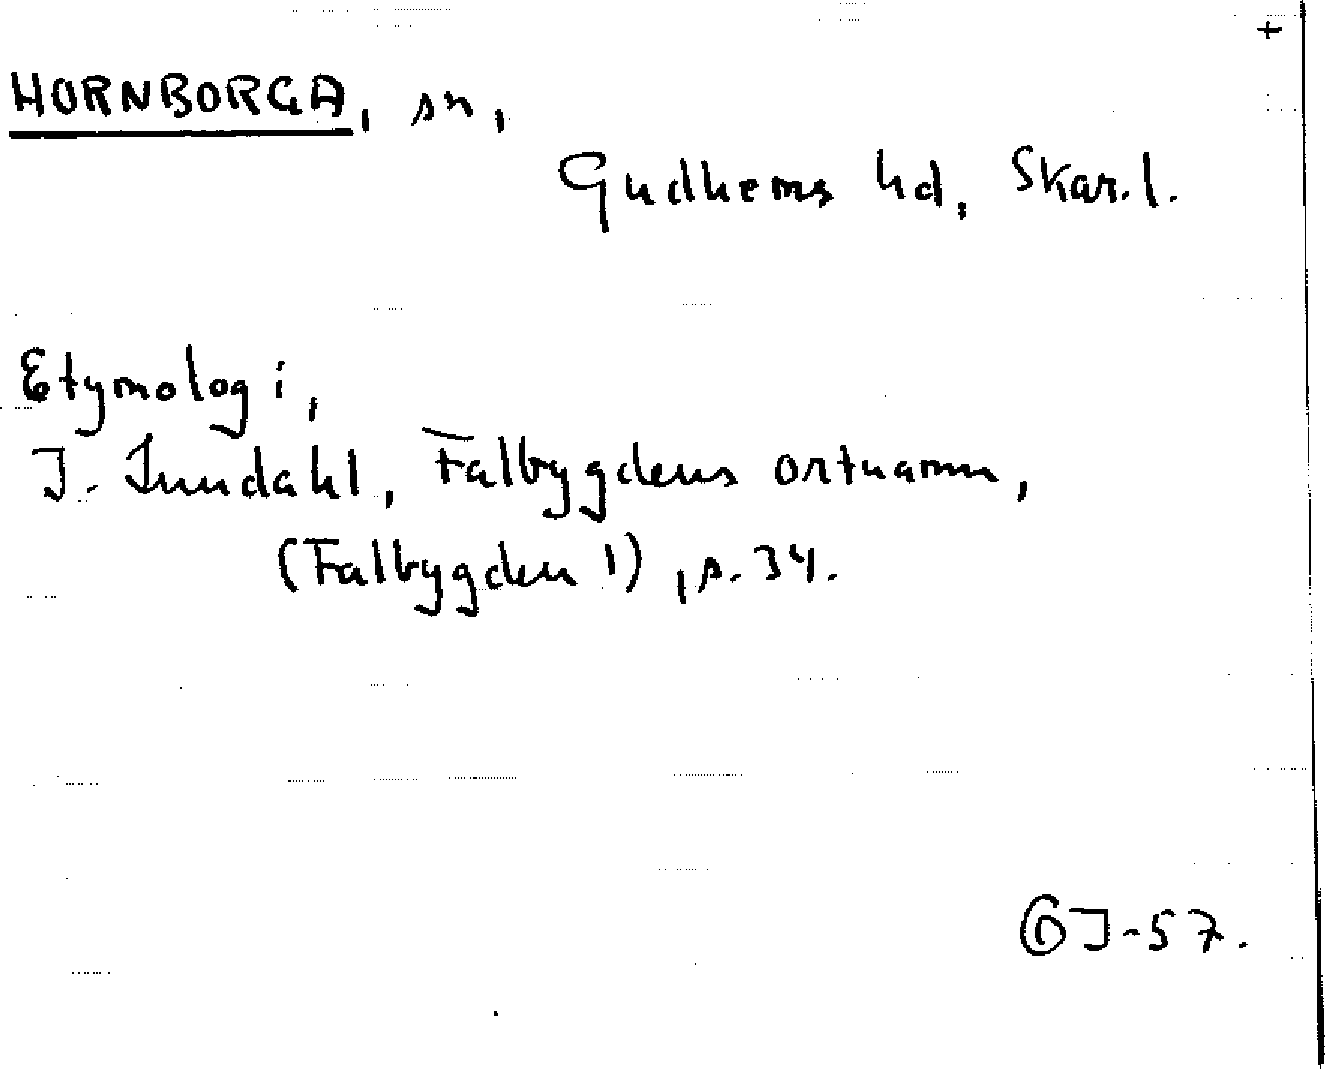 +
HORNBORGA, sn,
Gudhems hd, Skar.l.
Etymologi,
I. Lundahl, Falbygdens ortnamn,
(Falbygden 1), s. 34.
GJ-57.